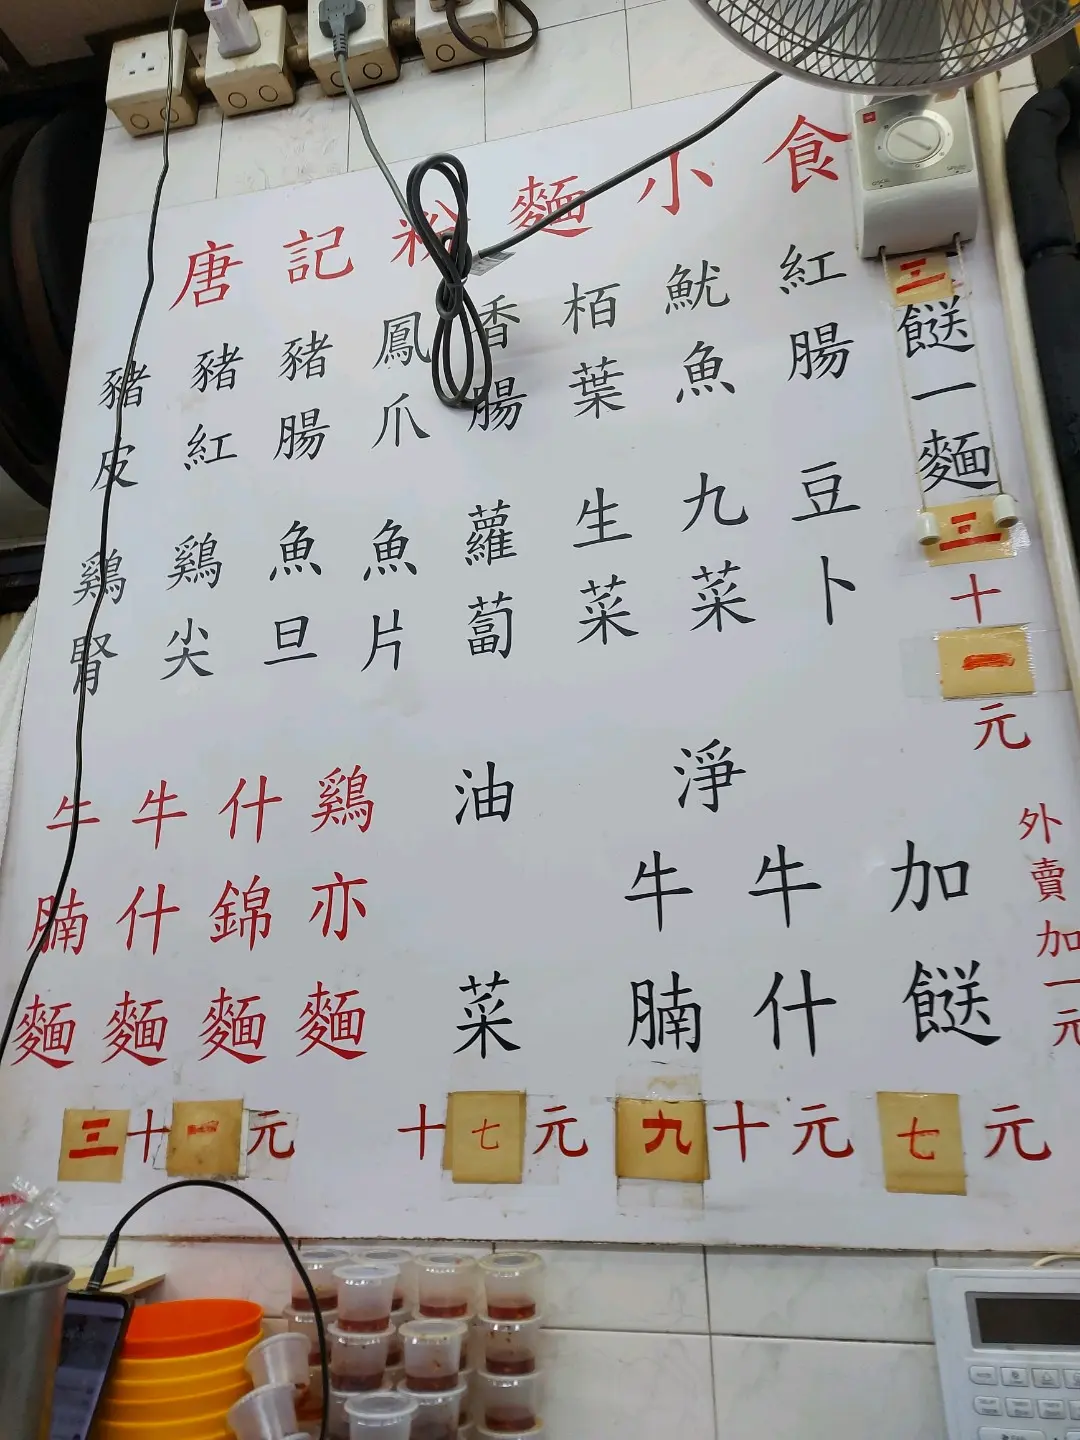 唐記粉麵小食
三餸一麵三十一元
紅腸
魷魚
栢葉
香腸
鳳爪
豬腸
豬紅
豬皮
豆卜
九菜
生菜
蘿蔔
魚片
魚旦
鷄尖
鷄腎
外賣加一元
加餸
七元
淨
牛什
牛腩
九十元
油菜
十七元
鷄亦麵
什錦麵
牛什麵
牛腩麵
三十一元